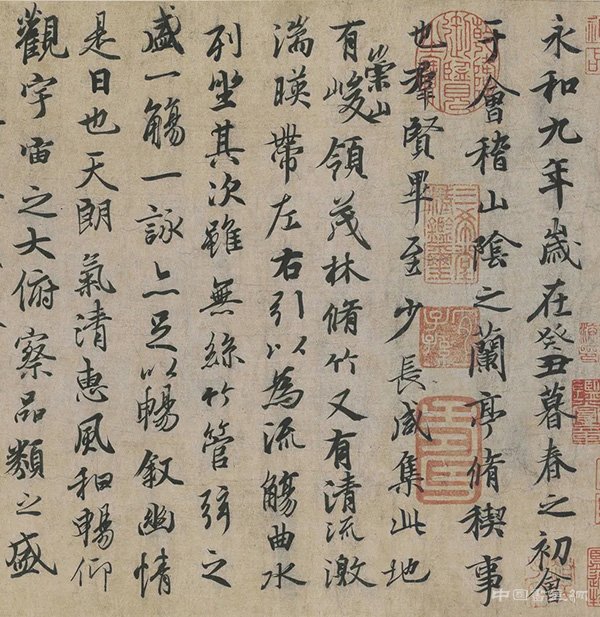 永和九年歲在癸丑暮春之初會
于會稽山陰之蘭亭脩稧事
也羣賢畢至少長咸集此地
有崇山峻領茂林脩竹又有清流激
湍暎帶左右引以為流觴曲水
列坐其次雖無絲竹管弦之
盛一觴一詠亦足以暢叙幽情
是日也天朗氣清惠風和暢仰
觀宇宙之大俯察品類之盛
三希堂精鑑璽
宜子孫